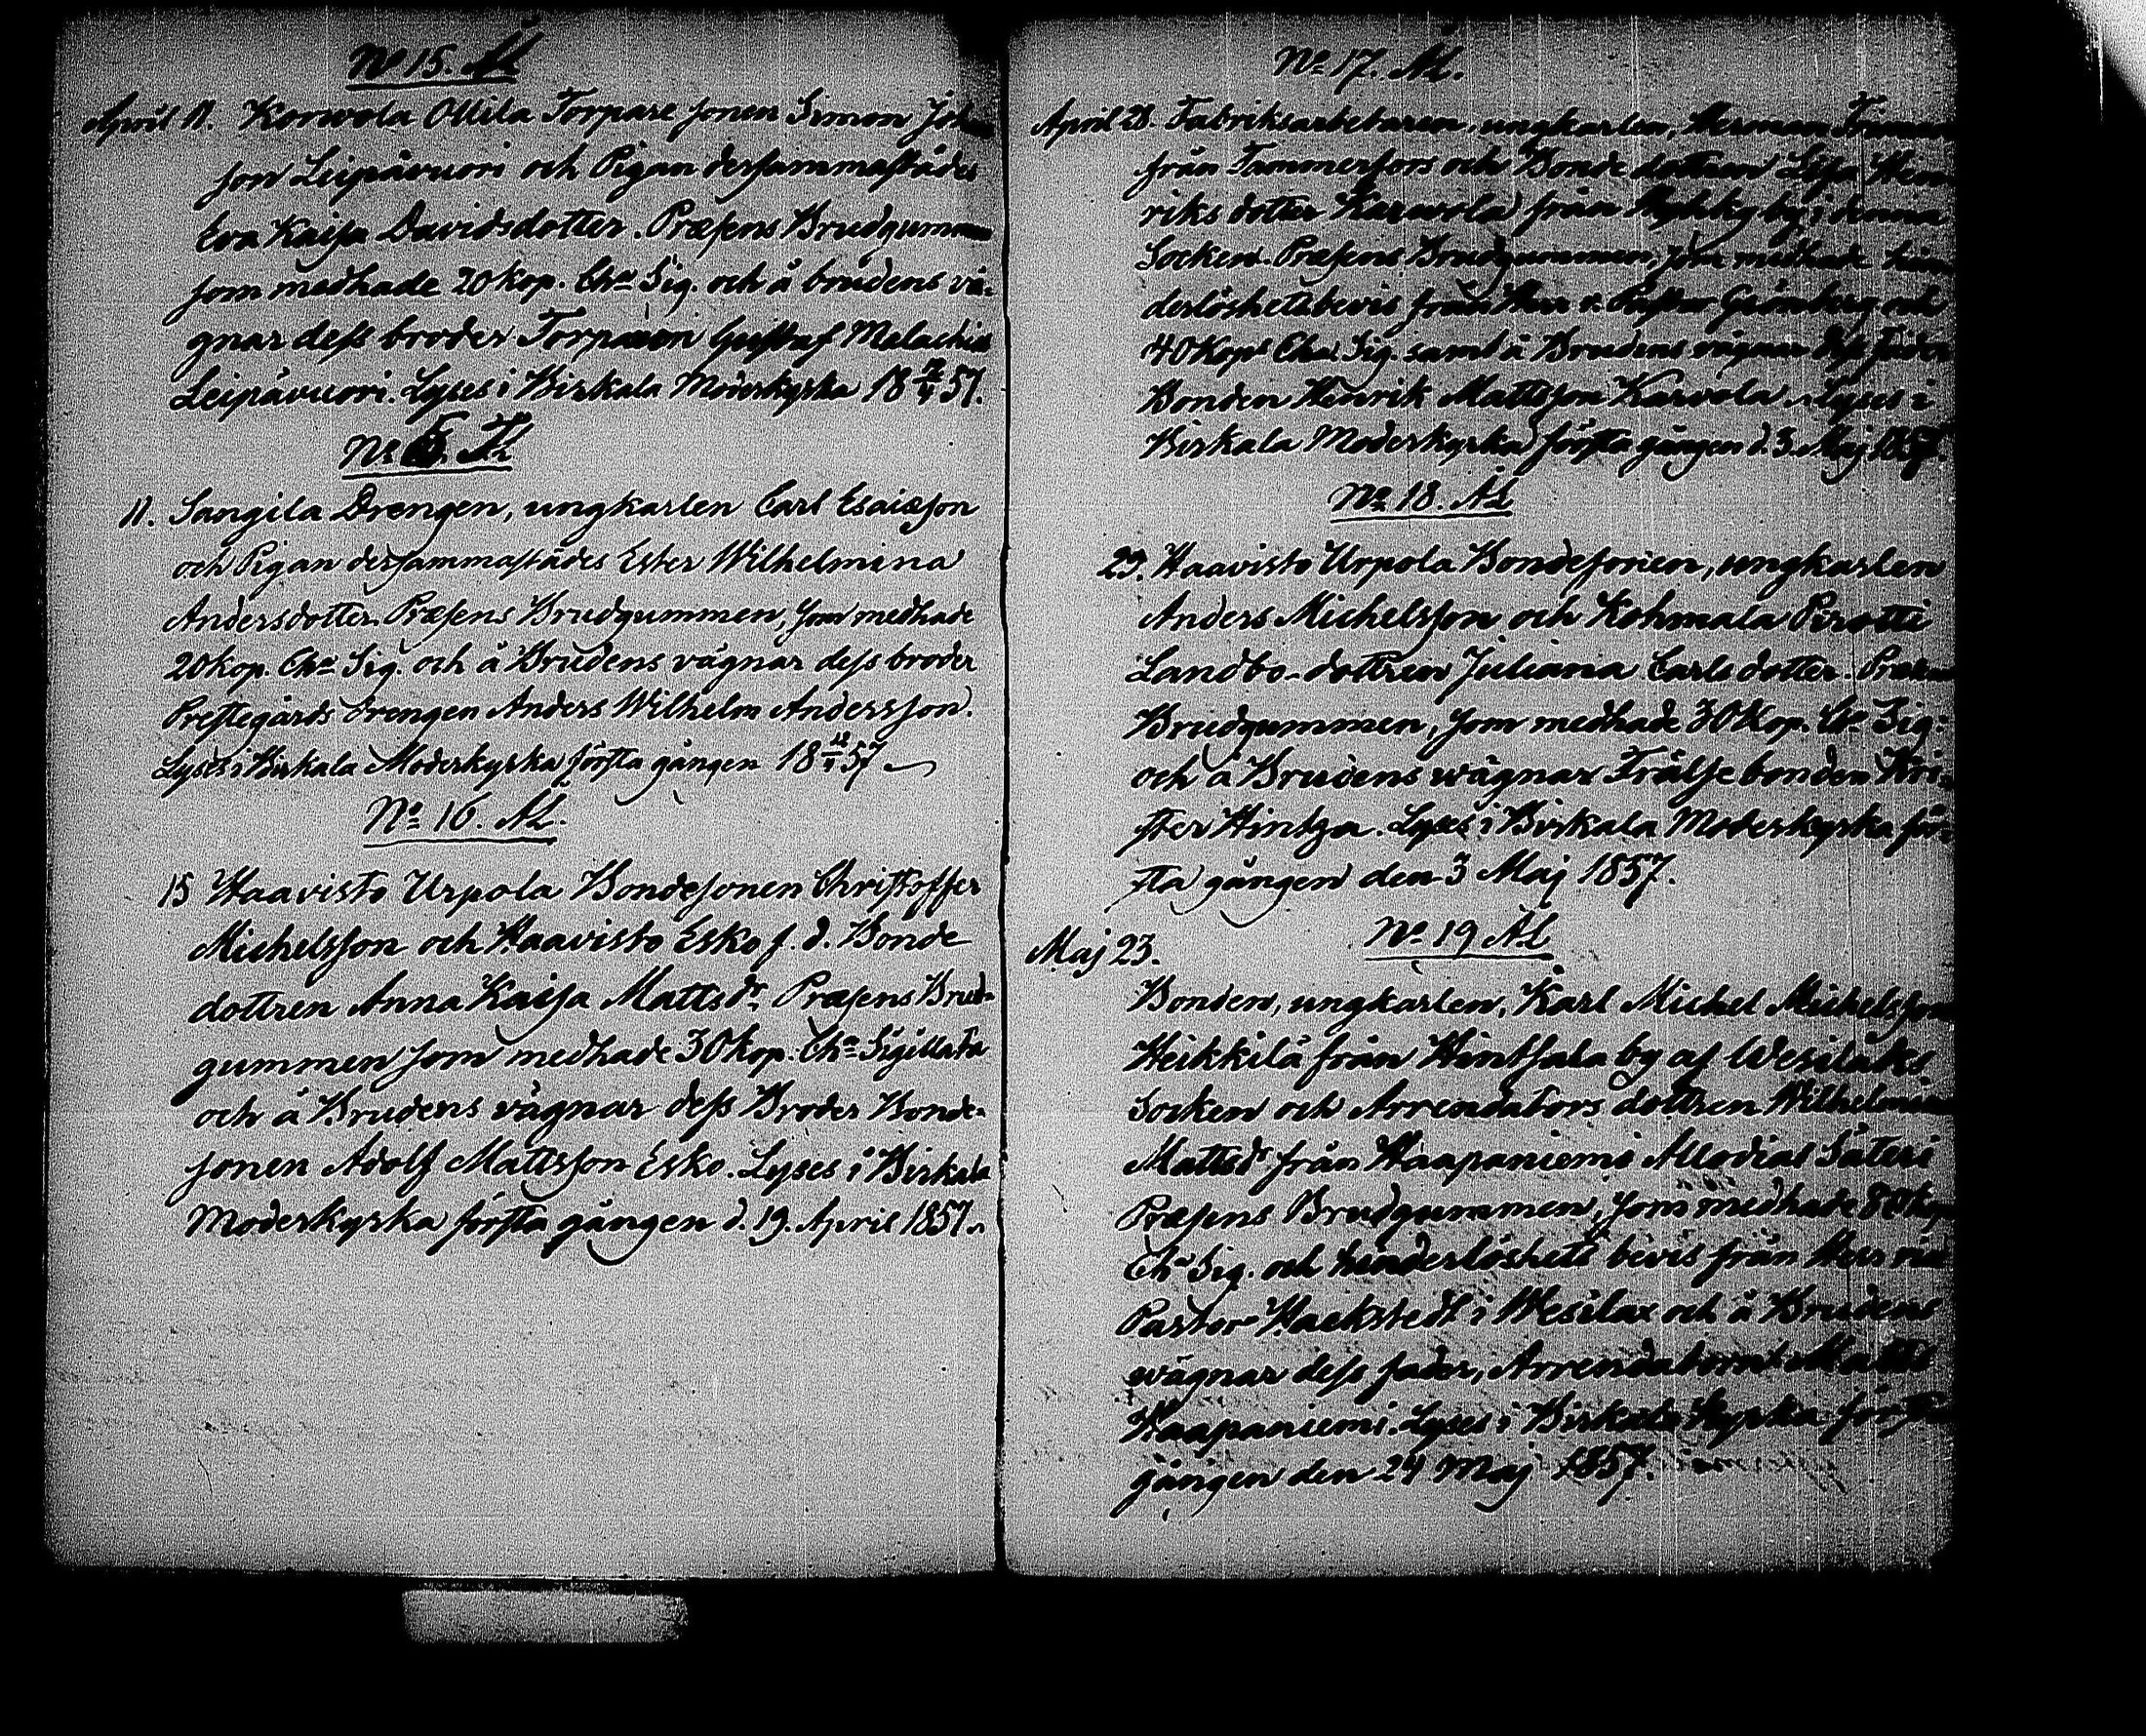 No 15. ÅL
April 11. Korwola Ollila Torpare sonen Simon Joh
son Leipävuori och Pigan dersammastädes
Eva Kaisa Davidsdotter. Præsens Brudgummen
som medhade 20 kop. Cha Sig. och å brudens vä-
gnar dess broder Torparen Gustaf Malachias
Leipävuori. Lyses i Birkala Moderkyrka 18 12/4 57.
No 5. TL
11. Sangila Drengen, ungkarlen Carl Esaiasson
och Pigan dersammastädes Ester Wilhelmina
Andersdotter. Præsens Brudgummen, som medhade
20 kop. Cha Sig. och å Brudens vägnar dess broder
Prestegårds drengen Anders Wilhelm Andersson.
Lyses i Birkala Moderkyrka första gången 18 12/4 57
No 16. ÅL.
15 Haavisto Urpola Bondesonen Christoffer
Michelsson och Haavisto Esko f. d. Bonde
dottren Anna Kaisa Mattsdr. Præsens Brud-
gummen som medhade 30 kop. Cha Sigillata
och å Brudens vägnar dess Broder Bonde-
sonen Adolf Mattsson Esko. Lyses i Birkala
Moderkyrka första gången d. 19. April 1857.
No 17. ÅL.
April 28. Fabriksarbetaren, ungkarlen, Herman
från Tammerfors och Bonde dottren Lisa Hen
riks dotter Karwola från by i denna
Socken. Præsens Brudgummen, som medhade hin
derlöshetsbevis från Herr v. Pastor Grönberg och
40 Kop. Cha Sig. samt å Brudens vägnar dess fader
Bonden Henrik Mattsson Karwola. Lyses i
Birkala Moderkyrka första gången d. 3. Maj 1857.
No 18. ÅL
29. Haavisto Urpola Bondesonen, ungkarlen
Anders Michelsson och Kohmala Pirotti
Landbo-dottren Juliana Carlsdotter. Præsens
Brudgummen, som medhade 30 Kop. Cha Sig:
och å Brudens wägnar Frälsebonden Kri-
ster Hintza. Lyses i Birkala Moderkyrka för-
sta gången den 3 Maj 1857.
No 19 ÅL
Maj 23.
Bonden, ungkarlen, Karl Michel Michelsson
Heikkilä från Hintsala by af Wesilaks
Socken och Arrendators dottren Wilhelmina
Mattsdr från Haapaniemi Allodial Säteri
Præsens Brudgummen, som medhade 80 kop
Cha Sig. och hinderlöshets bevis från Herr
Pastor Hackstedt i Wesilax och å Brudens
wägnar dess fader, Arrendatorn Matts
Haapaniemi. Lyses i Birkala Kyrka första
gången den 24 Maj 1857.